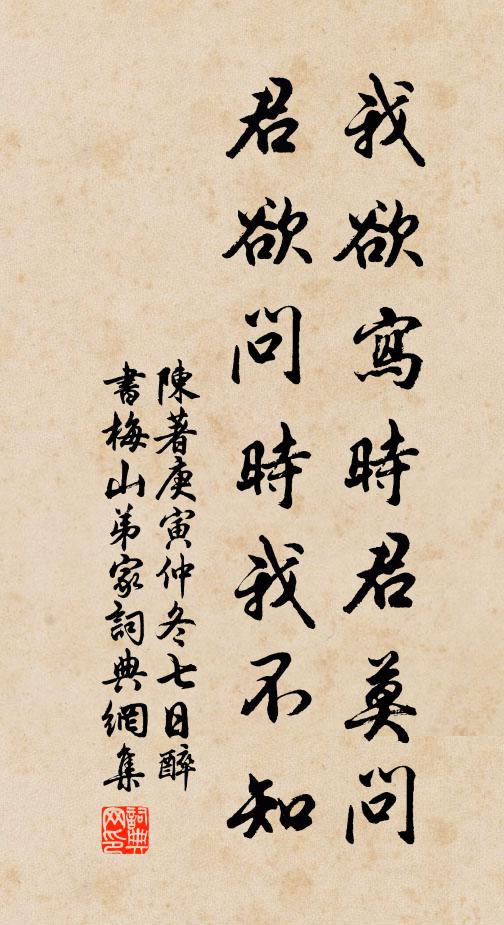 我欲寫時君莫問
君欲問時我不知
陳著庚寅仲冬七日醉
書梅山弟家詞典網集
詞典
网印